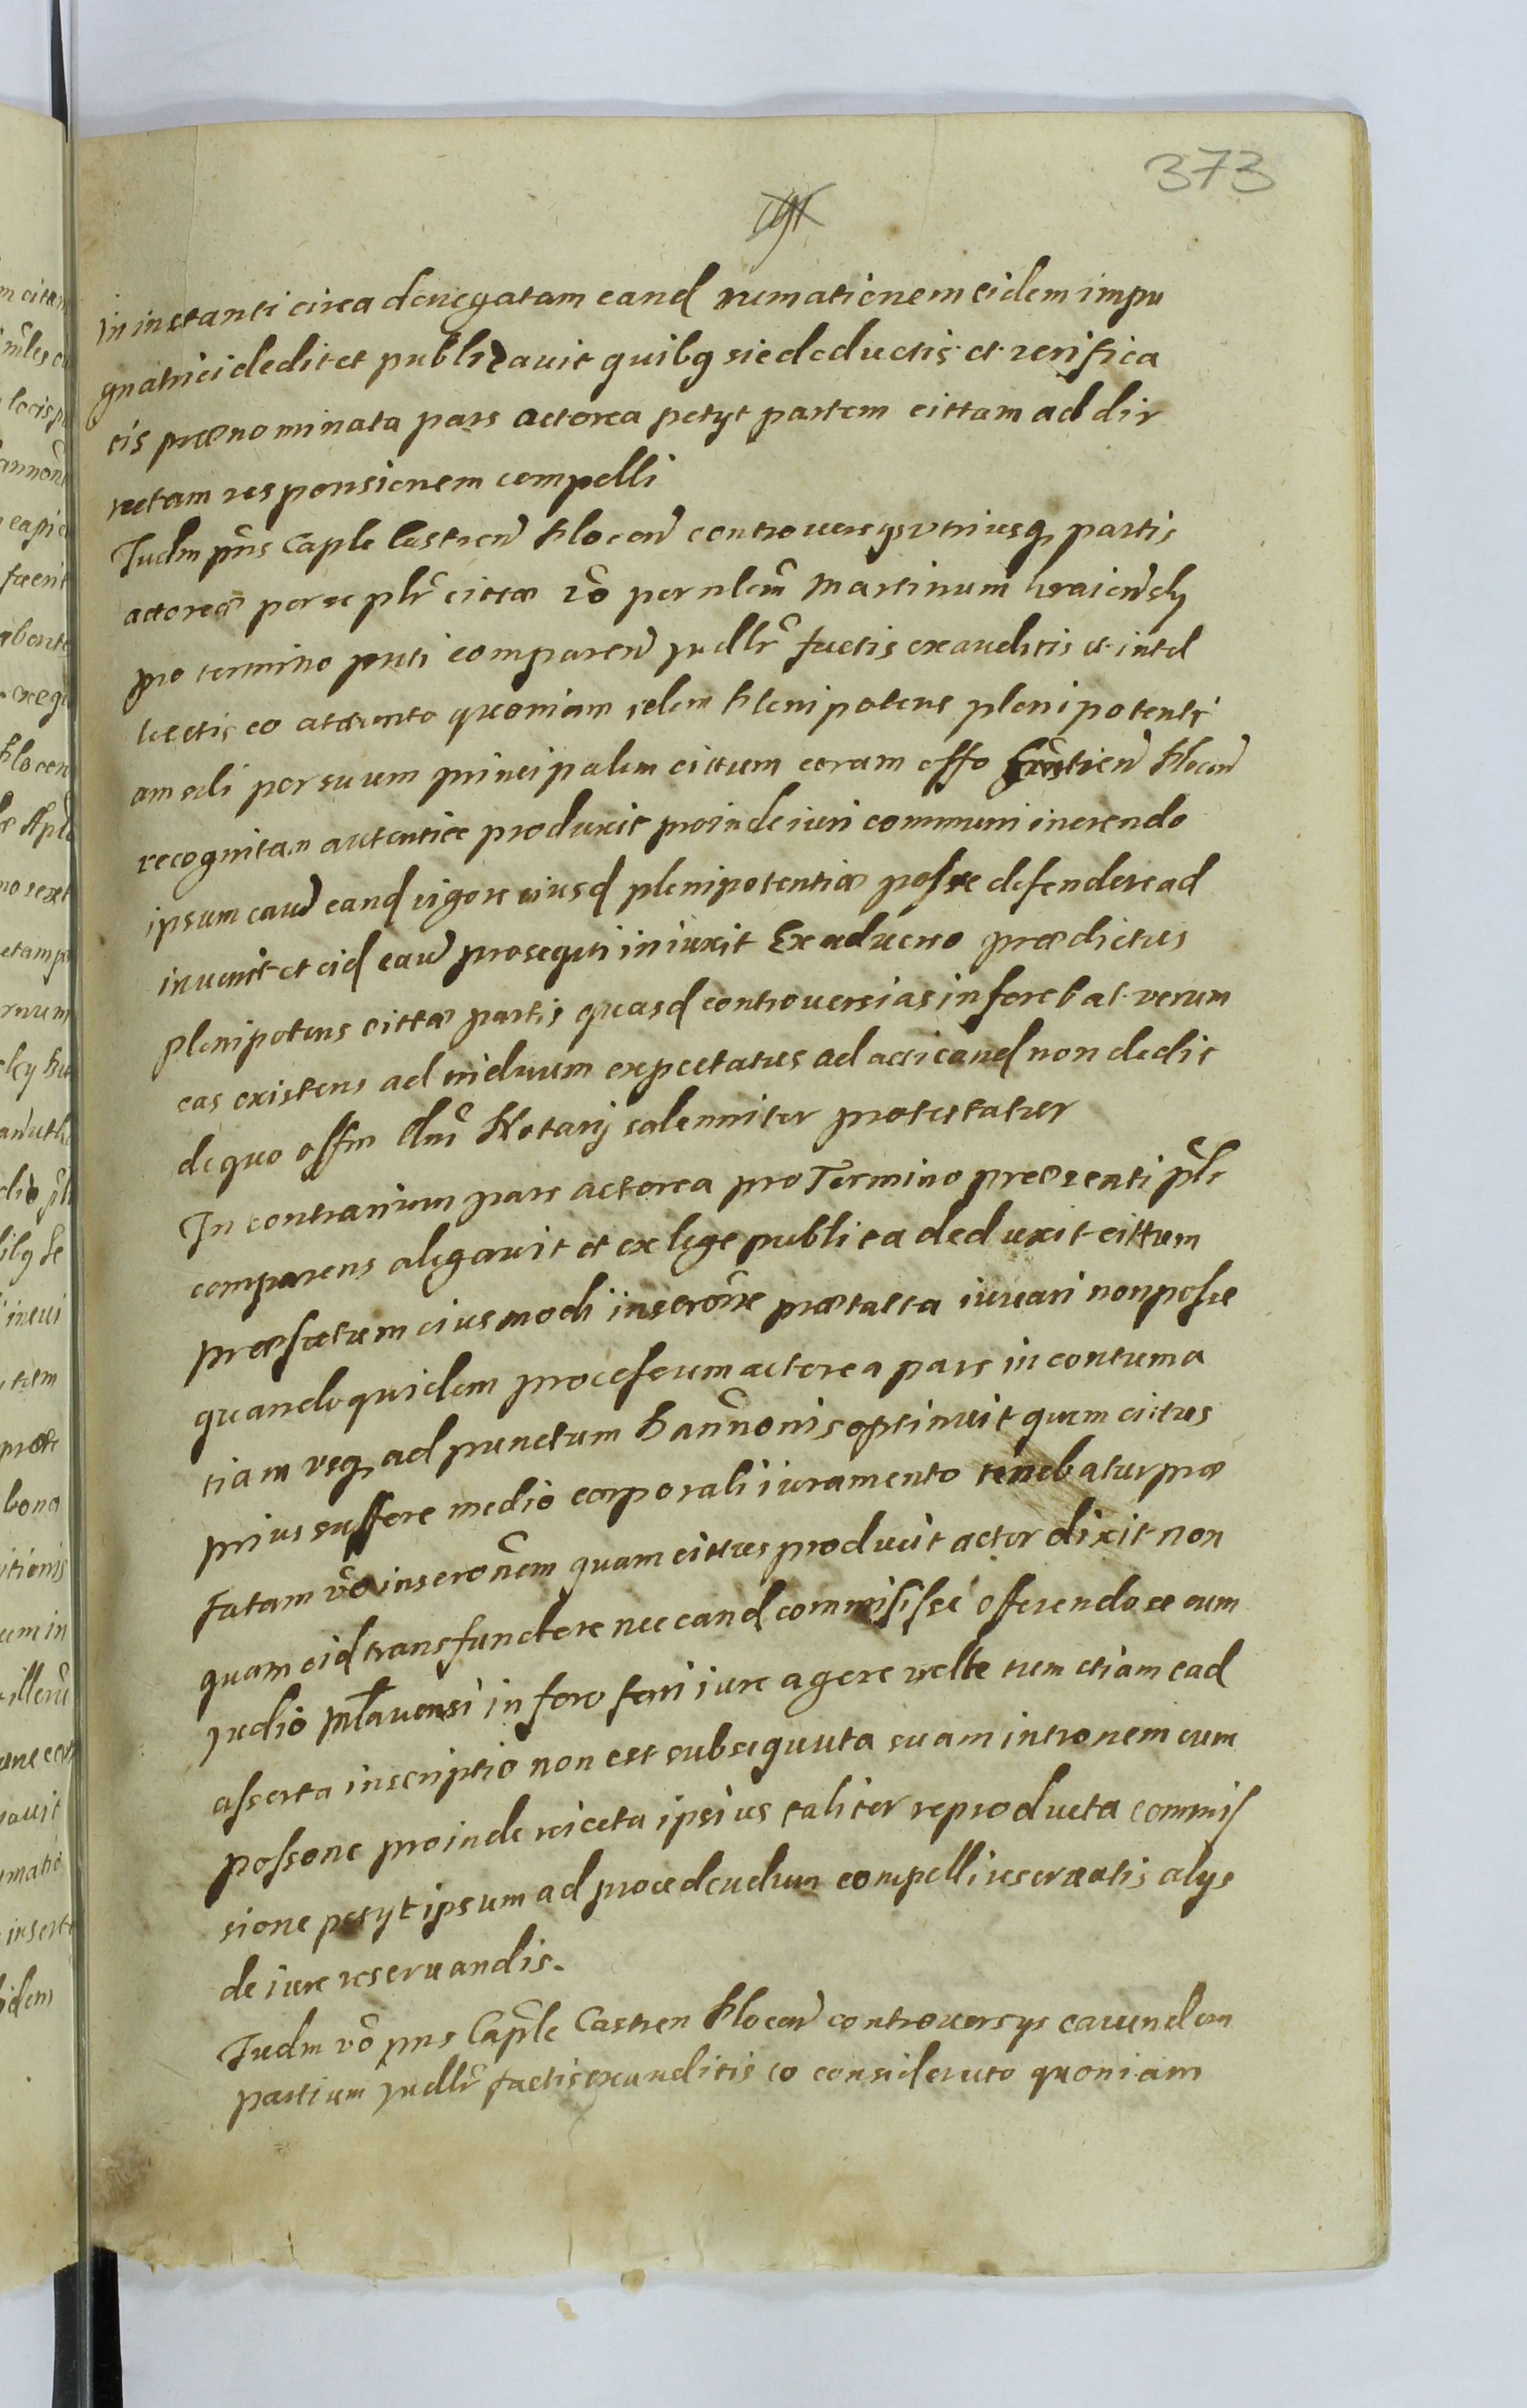 373
in instanti circa denegatam eand rumationem eidem impu
gnatrici dedit et publicavit quibq sic deductis et verifica
tis prænominata pars actorea petyt partem cittam ad dir
rectam responsionem compelli
Judm pns Caple Castren Klocen controversys vtriusq partis
actoreæ per se plr cittæ vo per nlem Martinum
pro termino pnti comparen judlr factis exauditis et intel
lectis eo attento quoniam idem plenipotens plenipotenti
am sibi per suum principalem cittum coram offo Castren Klocen
recognitam autentice produxit proinde iuri communi inerendo
ipsum caus eand vigore eiusd plenipotentiæ posse defendere ad
invenit et eid caus prosequi iniuxit Ex adverso prædictus
plenipotens cittæ partis quasd controversias inferebat verum
eas existens ad triduum expectatus ad acticand non dedit
de quo offm Dni Notarij solenniter protestatur
In contrarium pars actorea pro Termino præsenti plr
comparens alegavit et ex lege publica deduxit cittum
præfatum eiusmodi inscrone prætacta iuvari non posse
quandoquidem processum actorea pars in contuma
tiam vsq ad punctum Bannonis optinuit quem cittus
prius suffere medio corporali iuramento tenebatur præ
fatam vo inscronem quam cittus producit actor dixit non
quam eid transfundere nec eand commisisse offerendo se cum
judio Mlavensi in foro fori iure agere velle tum etiam ead
asserta inscriptio non est subsequuta suam intronem cum
possone proinde reiecta ipsius taliter reproducta commis
sione petyt ipsum ad procedendum compelli reservatis alys
de iure reservandis.
Judm vo pns Caple Castren Klocen controversys earundem
partium judlr factis exauditis eo considerato quoniam